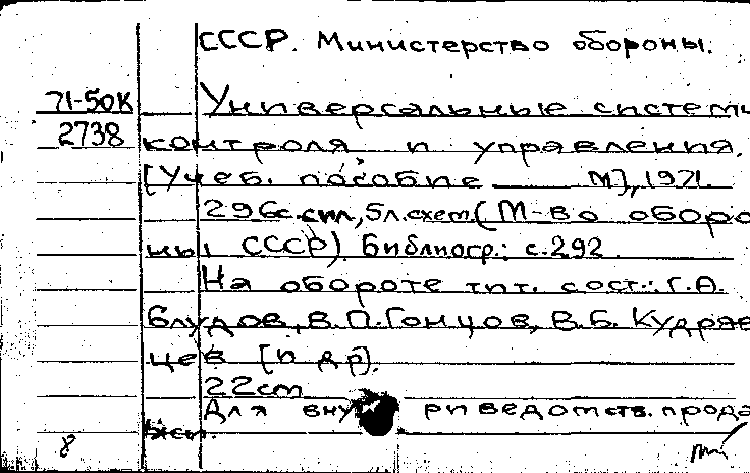 СССР. Министерство обороны.
71-50К Универсальные систем
2738 контроля и управления.
[Учеб. пособие — М], 1971.
296с. сил, 5л. схем (М-во оборо
ны СССР). Библиогр.: с.292.
На обороте тит. сост.: Г.А.
Блудов, В.П. Гонцов, В.Б. Кудряв
цев [и др].
22cm
Для внут риведомств. прода
жи.
8